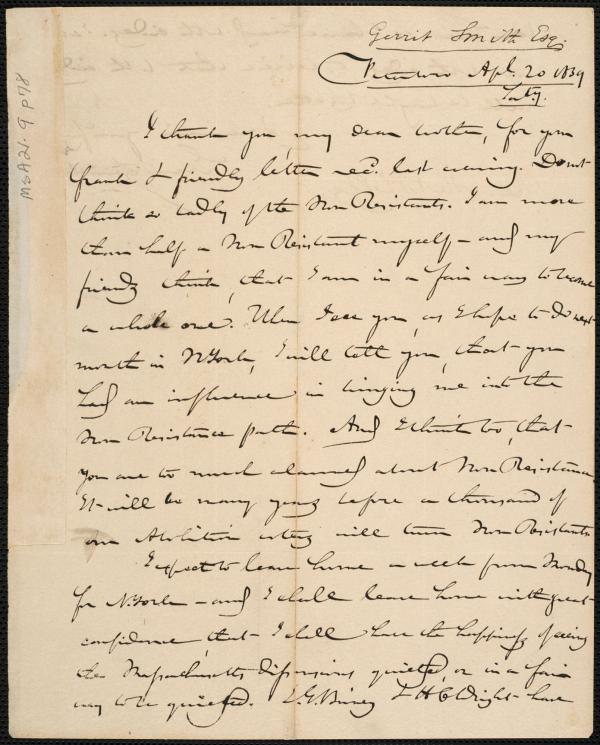 Gerrit Smith Esq.
Peterboro Apl. 20 1839
Saty.
MS A 21. 9 p 78
I thank you, my dear brother, for your
frank & friendly letter recd. last evening. Do not
think so badly of the Non Resistants. I am more
than half a Non Resistant myself — and my
friends think, that I am in a fair way to become
a whole one. When I see you, as I hope to do next
month in NYork, I will tell you, that you
had an influence in bringing me into the
Non Resistance path. And I think too, that
you are too much alarmed about Non Resistance.
It will be many years before a thousand of
our Abolition voters will turn Non Resistants.
I expect to leave home a week from Monday
for N.York — and I shall leave home with great
confidence, that I shall have the happiness of seeing
the Massachusetts dissensions quieted, or in a fair
way to be quieted. J.G. Birney & H C Wright have